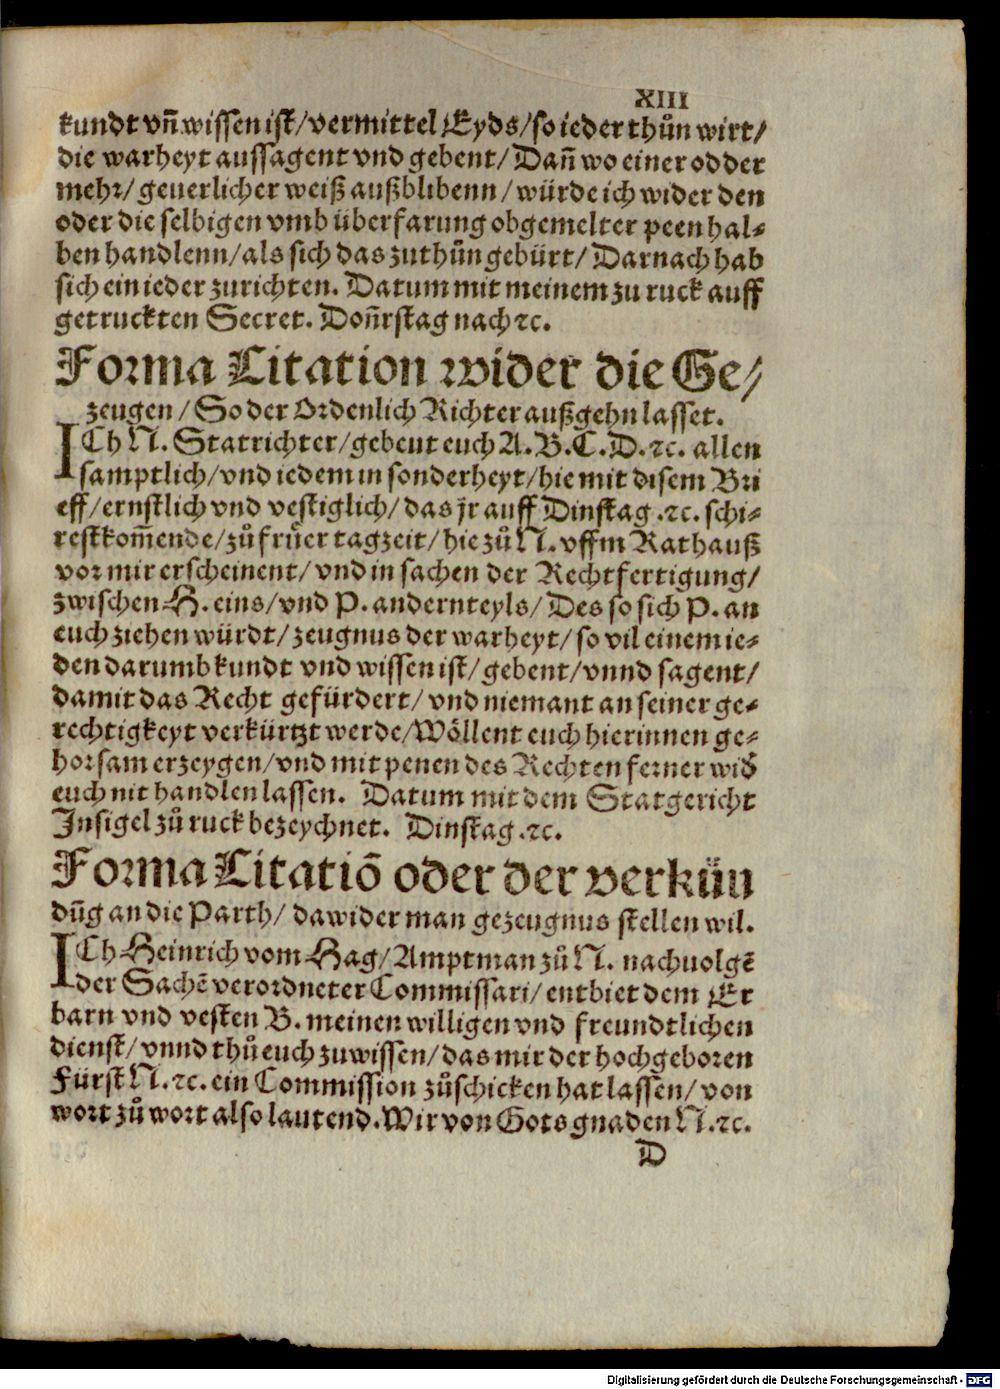 XIII
kundt vñ wissen ist/vermittel Eyds/so ieder thůn wirt/
die warheyt aussagent vnd gebent/Dañ wo einer odder
mehr/geuerlicher weiß außblibenn/würde ich wider den
oder die selbigen vmb überfarung obgemelter peen hal-
ben handlenn/als sich das zuthůn gebürt/Darnach hab
sich ein ieder zurichten. Datum mit meinem zu ruck auff
getruckten Secret. Doñrstag nach ꝛc.
Forma Citation wider die Ge/
zeugen/So der Ordenlich Richter außgehn lasset.
ICh N. Statrichter/gebeut euch A.B.C.D.ꝛc. allen
samptlich/vnd iedem in sonderheyt/hie mit disem Bri
eff/ernstlich vnd vestiglich/das jr auff Dinstag.ꝛc.schi-
restkom̃ende/zů frůer tagzeit/hie zů N. vffm Rathauß
vor mir erscheinent/vnd in sachen der Rechtfertigung/
zwischen H. eins/vnd P. andernteyls/Des so sich P. an
euch ziehen würdt/zeugnus der warheyt/so vil einem ie-
den darumb kundt vnd wissen ist/gebent/vnnd sagent/
damit das Recht gefürdert/vnd niemant an seiner ge-
rechtigkeyt verkürtzt werde/Wöllent euch hierinnen ge-
horsam erzeygen/vnd mit penen des Rechten ferner wid̃
euch nit handlen lassen. Datum mit dem Statgericht
Insigel zů ruck bezeychnet. Dinstag.ꝛc.
Forma Citatiõ oder der verkün
dũg an die Parth/dawider man gezeugnus stellen wil.
ICh Heinrich vom Hag/Amptman zů N. nachuolgẽ
der Sachẽ verordneter Commissari/entbiet dem Er
barn vnd vesten B. meinen willigen vnd freundtlichen
dienst/vnnd thů euch zuwissen/das mir der hochgeboren
Fürst N.ꝛc.ein Commission zůschicken hat lassen/von
wort zů wort also lautend.Wir von Gots gnaden N.ꝛc.
D
Digitalisierung gefördert durch die Deutsche Forschungsgemeinschaft - DFG